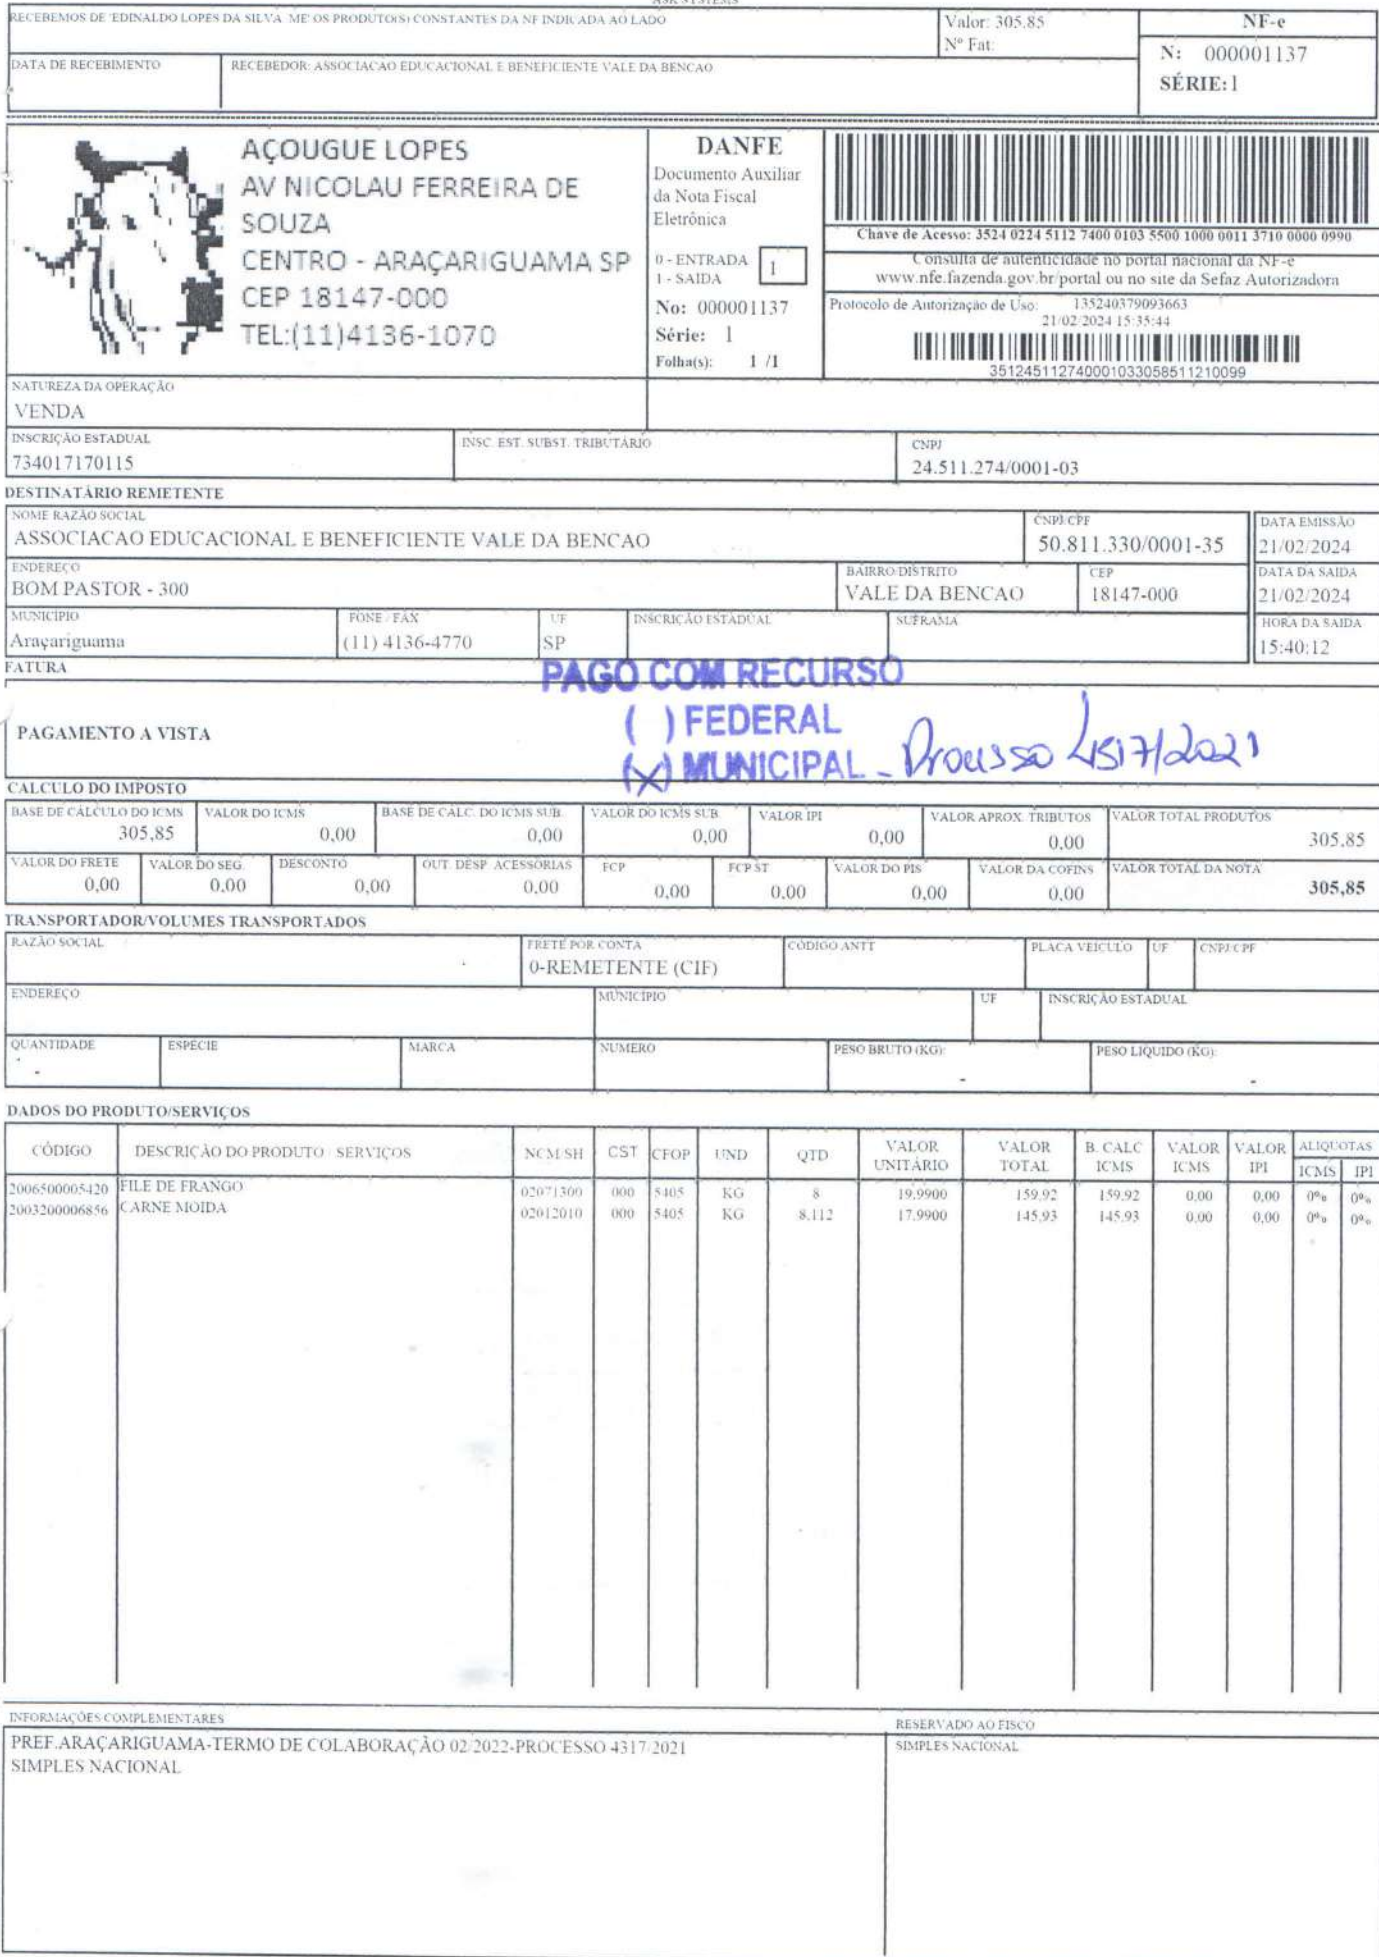 ASK SYSTEMS
RECEBEMOS DE 'EDINALDO LOPES DA SILVA ME' OS PRODUTO(S) CONSTANTES DA NF INDICADA AO LADO
Valor: 305.85
Nº Fat:
NF-e
N: 000001137
SÉRIE:1
DATA DE RECEBIMENTO
RECEBEDOR: ASSOCIACAO EDUCACIONAL E BENEFICIENTE VALE DA BENCAO
AÇOUGUE LOPES
AV NICOLAU FERREIRA DE
SOUZA
CENTRO - ARAÇARIGUAMA SP
CEP 18147-000
TEL:(11)4136-1070
DANFE
Documento Auxiliar
da Nota Fiscal
Eletrônica
0 - ENTRADA
1 - SAIDA
1
No: 000001137
Série: 1
Folha(s): 1 /1
Chave de Acesso: 3524 0224 5112 7400 0103 5500 1000 0011 3710 0000 0990
Consulta de autenticidade no portal nacional da NF-e
www.nfe.fazenda.gov.br/portal ou no site da Sefaz Autorizadora
Protocolo de Autorização de Uso: 135240379093663
21/02/2024 15:35:44
351245112740001033058511210099
NATUREZA DA OPERAÇÃO
VENDA
INSCRIÇÃO ESTADUAL
734017170115
INSC. EST. SUBST. TRIBUTÁRIO
CNPJ
24.511.274/0001-03
DESTINATÁRIO REMETENTE
NOME RAZÃO SOCIAL
ASSOCIACAO EDUCACIONAL E BENEFICIENTE VALE DA BENCAO
CNPJ/CPF
50.811.330/0001-35
DATA EMISSÃO
21/02/2024
ENDEREÇO
BOM PASTOR - 300
BAIRRO/DISTRITO
VALE DA BENCAO
CEP
18147-000
DATA DA SAIDA
21/02/2024
MUNICÍPIO
Araçariguama
FONE / FAX
(11) 4136-4770
UF
SP
INSCRIÇÃO ESTADUAL
SUFRAMA
HORA DA SAIDA
15:40:12
FATURA
PAGO COM RECURSO
( ) FEDERAL
(X) MUNICIPAL - Processo 4317/2021
PAGAMENTO A VISTA
CALCULO DO IMPOSTO
BASE DE CÁLCULO DO ICMS VALOR DO ICMS BASE DE CALC. DO ICMS SUB. VALOR DO ICMS SUB. VALOR IPI VALOR APROX. TRIBUTOS VALOR TOTAL PRODUTOS
305,85 0,00 0,00 0,00 0,00 0,00 305.85
VALOR DO FRETE VALOR DO SEG. DESCONTO OUT. DESP. ACESSÓRIAS FCP FCP ST VALOR DO PIS VALOR DA COFINS VALOR TOTAL DA NOTA
0,00 0,00 0,00 0.00 0,00 0,00 0,00 0,00 305,85
TRANSPORTADOR/VOLUMES TRANSPORTADOS
RAZÃO SOCIAL
FRETE POR CONTA
0-REMETENTE (CIF)
CÓDIGO ANTT
PLACA VEICULO
UF
CNPJ/CPF
ENDEREÇO
MUNICÍPIO
UF
INSCRIÇÃO ESTADUAL
QUANTIDADE
-
ESPÉCIE
MARCA
NUMERO
PESO BRUTO (KG):
-
PESO LIQUIDO (KG):
-
DADOS DO PRODUTO/SERVIÇOS
CÓDIGO DESCRIÇÃO DO PRODUTO / SERVIÇOS NCM/SH CST CFOP UND QTD VALOR UNITÁRIO VALOR TOTAL B. CALC ICMS VALOR ICMS VALOR IPI ALIQUOTAS ICMS IPI
2006500005420 FILE DE FRANGO 02071300 000 5405 KG 8 19,9900 159,92 159,92 0,00 0,00 0% 0%
2003200006856 CARNE MOIDA 02012010 000 5405 KG 8,112 17,9900 145,93 145,93 0,00 0,00 0% 0%
INFORMAÇÕES COMPLEMENTARES
PREF.ARAÇARIGUAMA-TERMO DE COLABORAÇÃO 02/2022-PROCESSO 4317/2021
SIMPLES NACIONAL
RESERVADO AO FISCO
SIMPLES NACIONAL